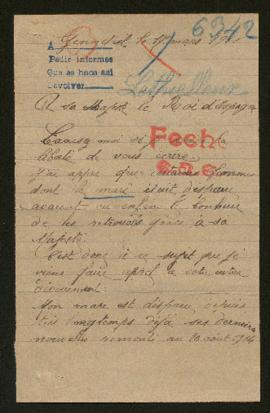 6342
A
Pedir informes
Que se haga así
Devolver
le 17 mars
A sa Majesté le Roi d'Espagne
Fech
moi si je la
de vous écrire
J'ai appris que certaines femmes
dont la mari était disparu
avaient eu enfin le bonheur
de les retrouver grâce à sa
Majesté.
C'est donc à ce sujet que je
viens faire appel à votre
Mon mari est disparu depuis
très longtemps déjà ses dernières
nouvelles remonte au 20 août 1914